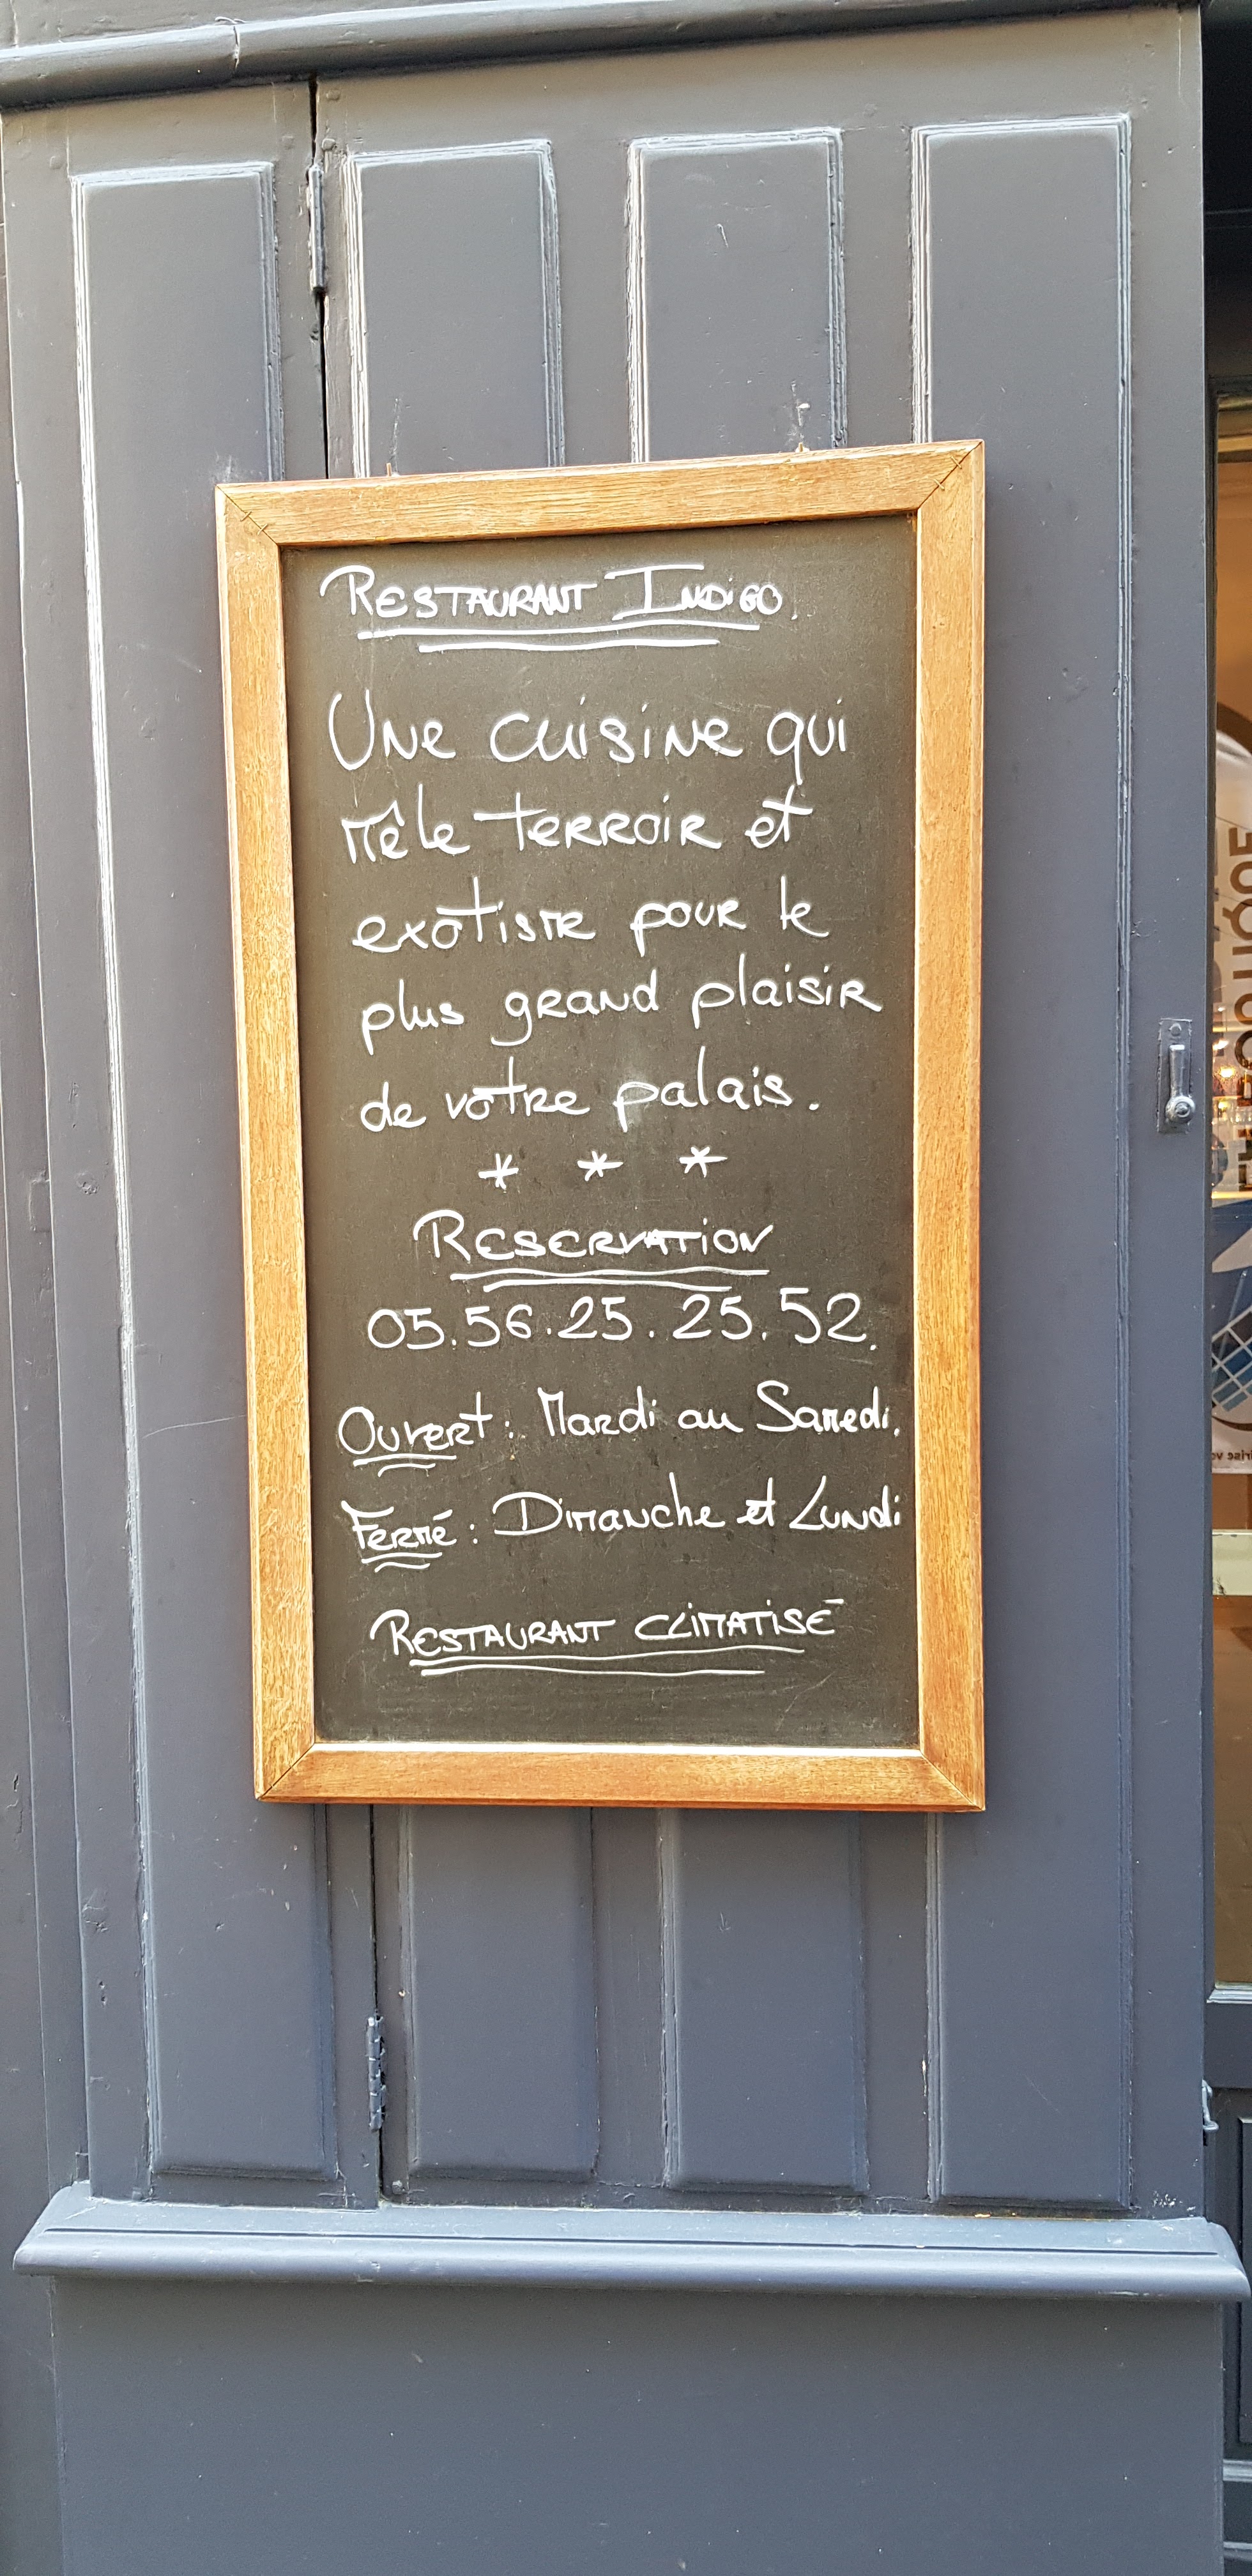 RESTAURANT INDIGO.
Une cuisine qui
mêle terroir et
exotisme pour le
plus grand plaisir
de votre palais.
* * *
RESERVATION
05.56.25.25.52.
Ouvert : Mardi au Samedi.
Fermé : Dimanche et Lundi
RESTAURANT CLIMATISÉ